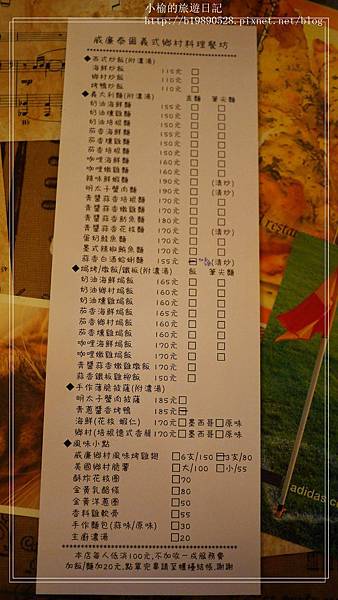 小榆的旅遊日記
http://b19890528.pixnet.net/blog
威廉泰國義式鄉村料理餐坊
◆西式炒飯(附濃湯)
海鮮炒飯 115元 □
鄉村炒飯 110元 □
烤鴨炒飯 110元 □
◆義大利麵(附濃湯) 直麵 筆尖麵
奶油海鮮麵 155元 □ □
奶油燻雞麵 150元 □ □
奶油培根麵 150元 □ □
茄香海鮮麵 155元 □ □
茄香燻雞麵 150元 □ □
茄香培根麵 150元 □ □
咖哩海鮮麵 160元 □ □
咖哩燻雞麵 160元 □ □
辣味鮮蝦麵 190元 □ □(清炒)
明太子蟹肉麵 190元 □ □
青醬蒜香培根麵 170元 □ □
青醬蒜香燻雞麵 170元 □ □
青醬蒜香鮪魚麵 170元 □ □
青醬蒜香花枝麵 170元 □ □(清炒)
蛋奶鮭魚麵 170元 □ □
墨式辣椒鮪魚麵 170元 □ □
蒜香白酒蛤蜊麵 155元 □(清炒)
◆焗烤/燉飯/鐵板(附濃湯) 飯 筆尖麵
奶油海鮮焗飯 165元 □ □
奶油鄉村焗飯 165元 □ □
奶油燻雞焗飯 160元 □ □
茄香海鮮焗飯 165元 □ □
茄香鄉村焗飯 160元 □ □
茄香燻雞焗飯 165元 □ □
咖哩海鮮焗飯 170元 □ □
咖哩燻雞焗飯 170元 □ □
青醬蒜香燻雞燉飯 170元 □
蒜香鐵板雞柳飯 150元 □
◆手作薄脆披薩(附濃湯)
明太子蟹肉披薩 185元□
青蔥醬香烤鴨 185元□
海鮮(花枝 蝦仁) 170元□墨西哥□原味
鄉村(培根德式香腸)170元□墨西哥□原味
◆風味小點
威廉鄉村風味烤雞翅 □6支/150 □3支/80
美國鄉村脆薯 □大/100 □小/55
酥炸花枝圈 □70
金黃乳酪條 □80
金黃洋蔥圈 □50
香料雞軟骨 □55
手作麵包(蒜味/原味) □30
主廚濃湯 □20
本店每人低消100元,不加收一成服務費
加飯/麵加20元,點單完畢請至櫃檯結帳,謝謝
restau
adidas